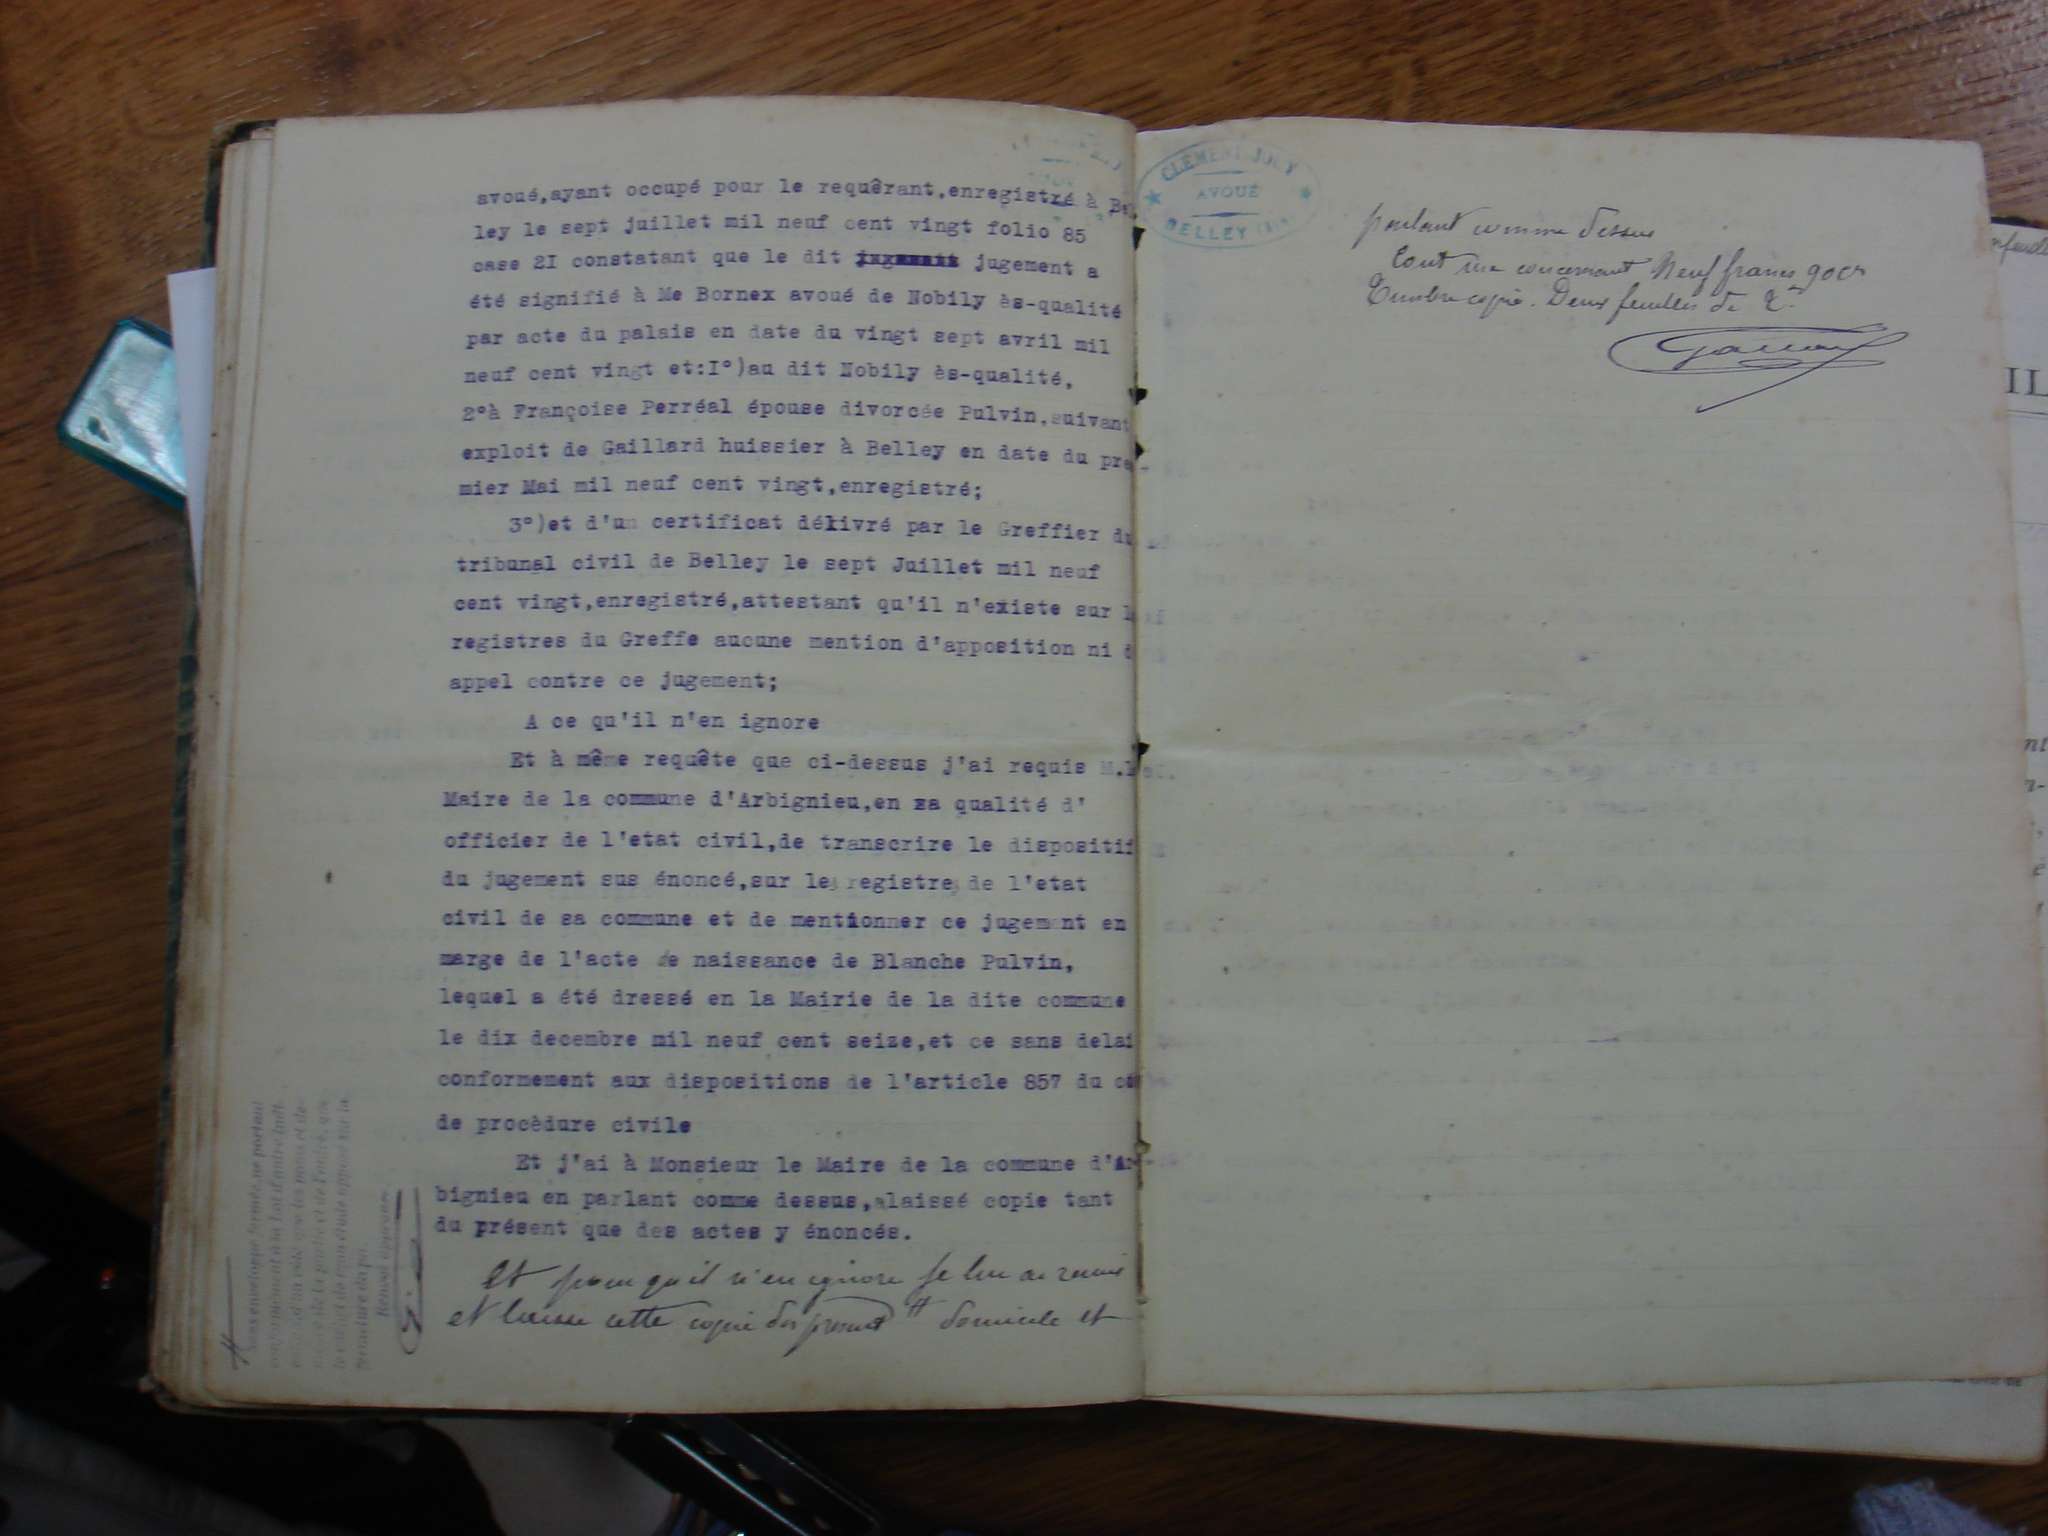 avoué,ayant occupé pour le requêrant,enregistré à Bel
ley le sept juillet mil neuf cent vingt folio 85
case 2I constatant que le dit jugement a
été signifié à Me Bornex avoué de Nobily ès-qualité
par acte du palais en date du vingt sept avril mil
neuf cent vingt et:I°)au dit Nobily ès-qualité,
2°à Françoise Perréal épouse divorcée Pulvin,suivant
exploit de Gaillard huissier à Belley en date du pre-
mier Mai mil neuf cent vingt,enregistré;
3°)et d'un certificat délivré par le Greffier du
tribunal civil de Belley le sept Juillet mil neuf
cent vingt,enregistré,attestant qu'il n'existe sur
registres du Greffe aucune mention d'apposition ni d
appel contre ce jugement;
A ce qu'il n'en ignore
Et à même requête que ci-dessus j'ai requis
Maire de la commune d'Arbignieu,en sa qualité d'
officier de l'etat civil,de transcrire le dispositif
du jugement sus énoncé,sur les registres de l'etat
civil de sa commune et de mentionner ce jugement en
marge de l'acte de naissance de Blanche Pulvin,
lequel a été dressé en la Mairie de la dite commune
le dix decembre mil neuf cent seize,et ce sans delai
conformement aux dispositions de l'article 857 du
de procèdure civile
Et j'ai à Monsieur le Maire de la commune d'Ar-
bignieu en parlant comme dessus,alaissé copie tant
du présent que des actes y énoncés.
Et pour qu'il n'en ignore je lui ai remis
et laissé cette copie domicile et
Sous enveloppe fermée ne portant
conformément à la Loi, d'autre indi-
d'un côté que les nom et de-
de la partie et de l'autre, que
le cachet de mon étude apposé sur la
fermeture du pli.
Renvoi approuvé.
CLEMENT JOLY
AVOUÉ
BELLEY
parlant comme dessus
Cout Neuf francs 90 cs
copie. Deux feuilles de